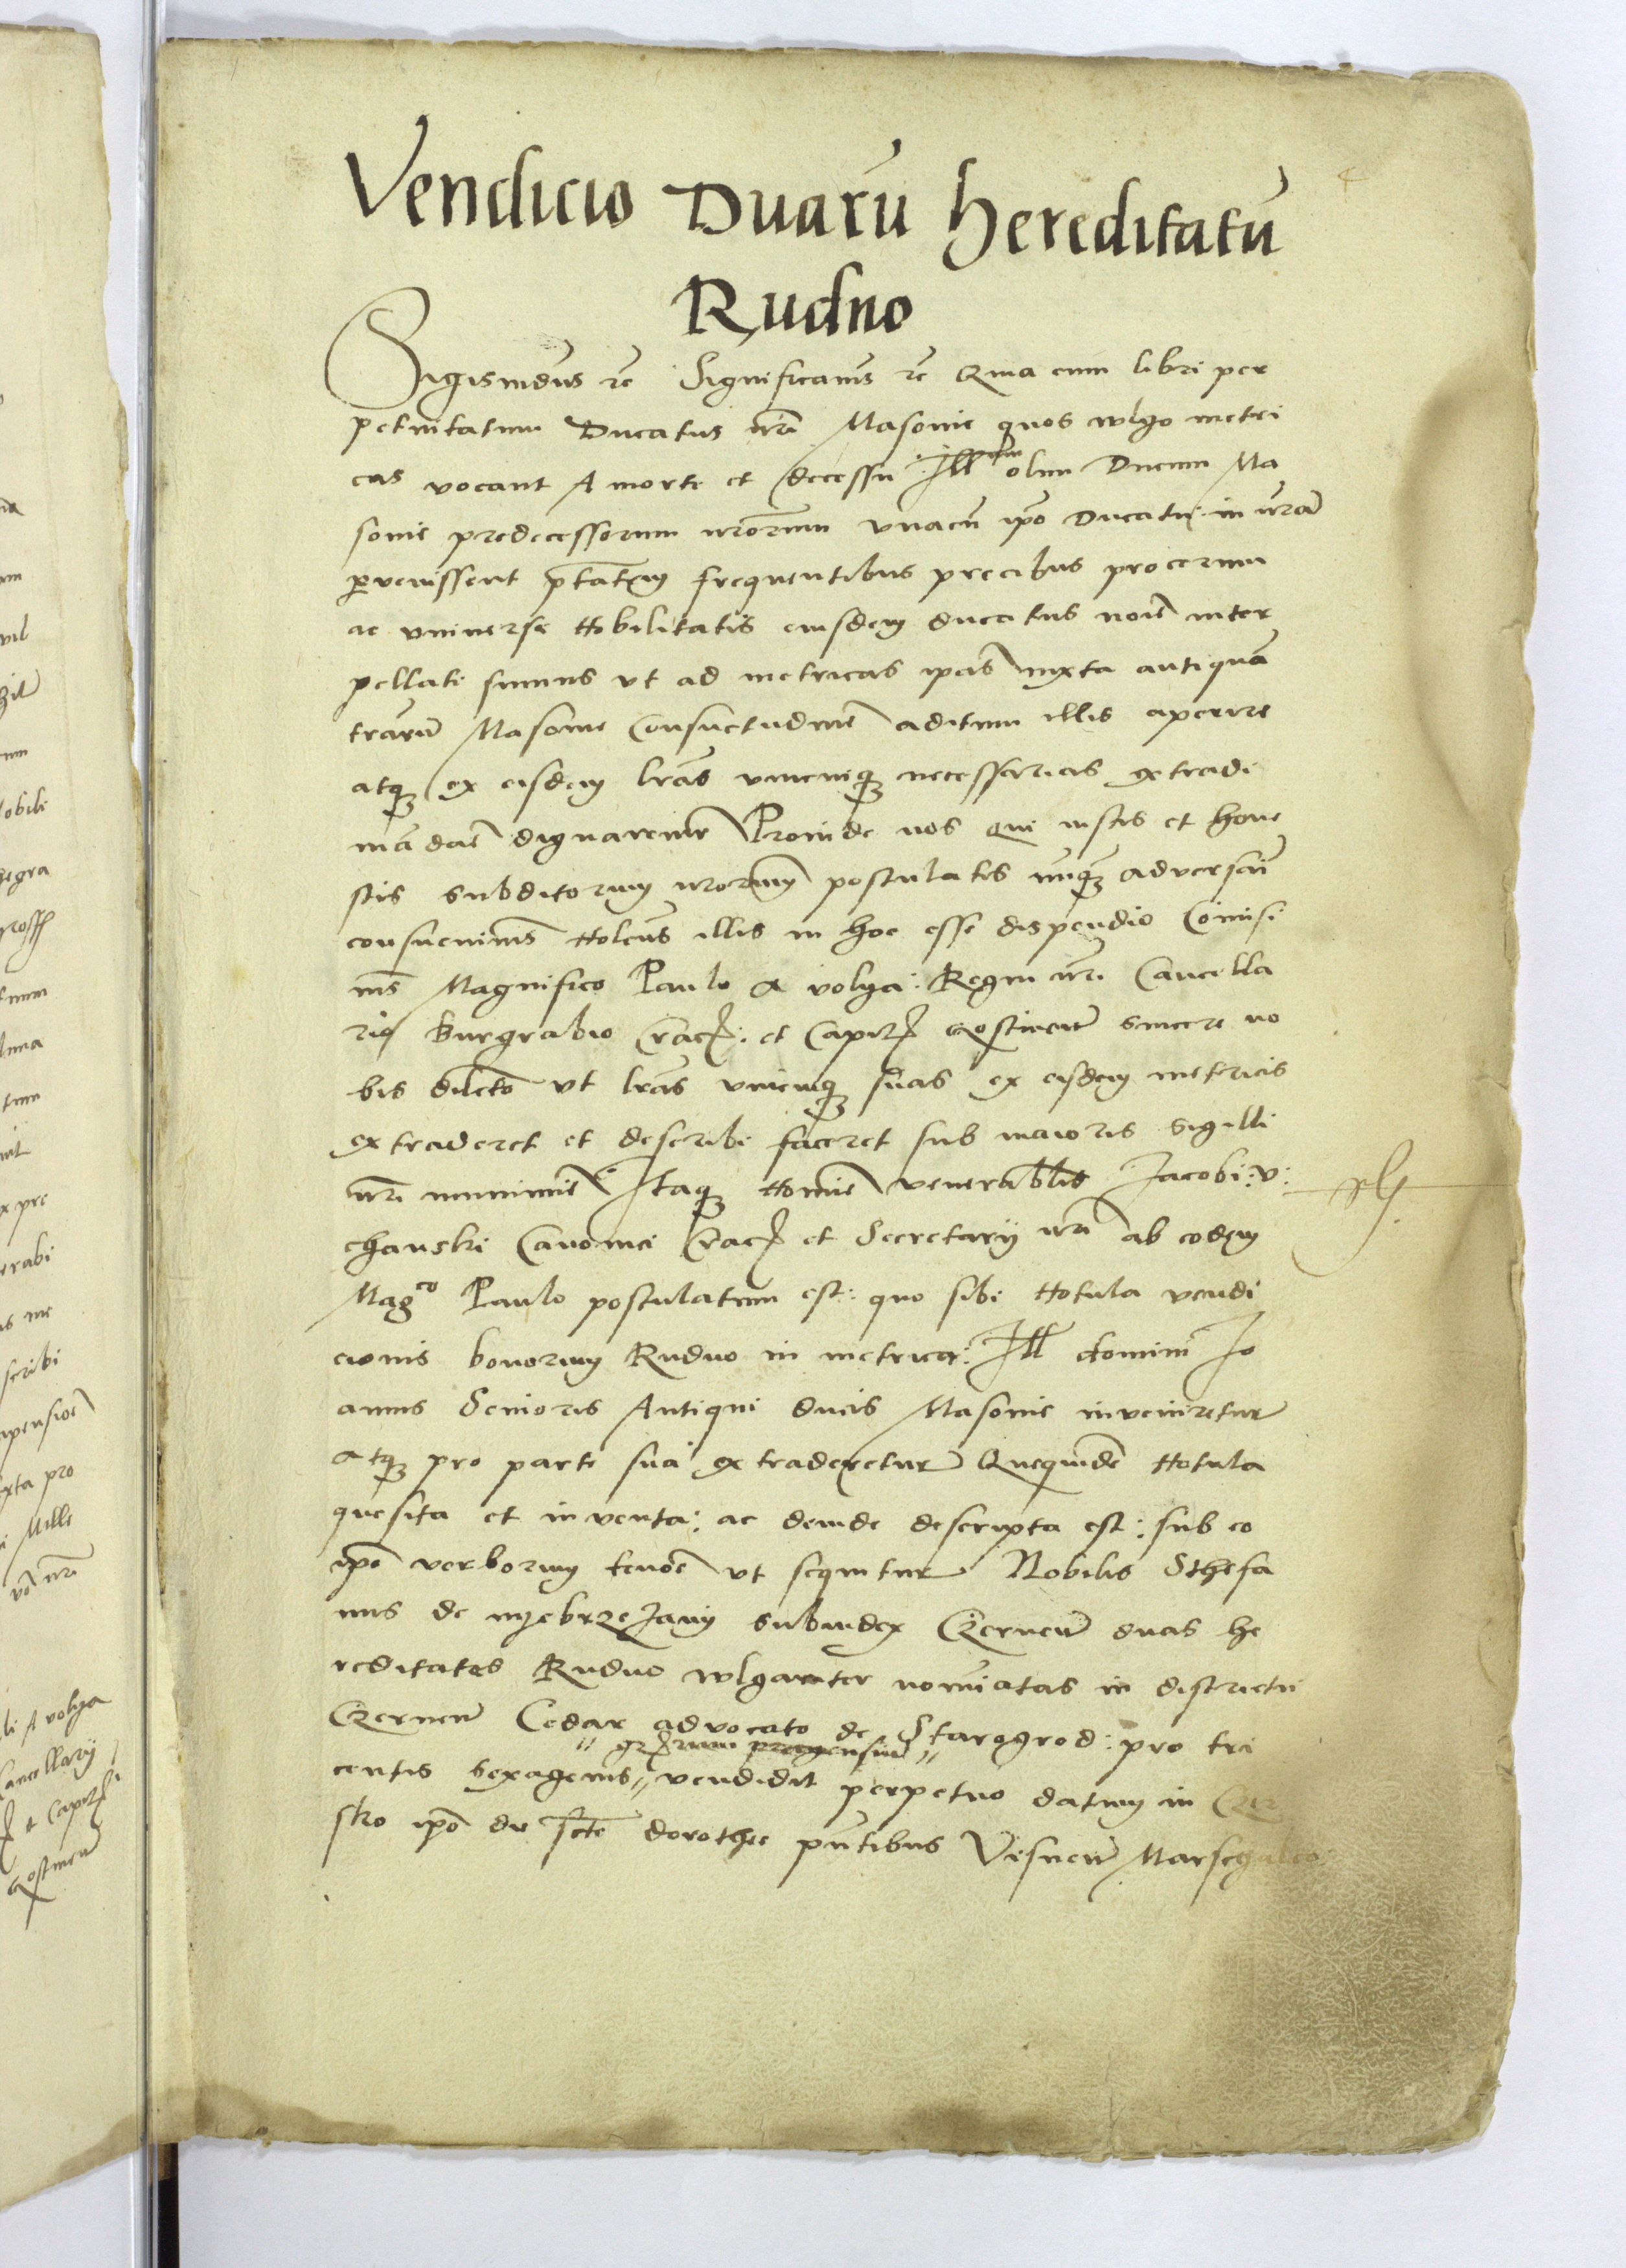 Vendicio Duarū hereditatū
Rudno
Sigismūdus rē Significamus rē Quia cum libri per
petuitatum Ducatus nr̄i Masovie quos wlgo metri
cas vocant A morte et decessu Ill olim Ducum Ma
sovie predecessorum nrōrum vnacū ipō Ducatu: in nr̄am
pervenissent ptātem frequentibus precibus procerum
ac vniverse Nobilitatis eiusdem ducatus noīe inter
pellati sumus vt ad metricas ipas iuxta antiquā
terrarū Masovie Consuetudinē aditum illis aperire
atq3 ex eisdem lrās vnicuiq3 necessarias extradi
mādare dignaremur Proinde nos qui iustis et hone
stis subditorum nrōrum postulatis nunq3 adversari
consuevimus Nolētes illis in hoc esse dispendio Cōmisi
mus Magnifico Paulo A volya: Regni nr̄i Cancella
rio Burgrabio Crac: et Capit Gostinen sincere no
bis dilecto vt lrās vnicuiq3 suas ex eisdem metricis
extraderet et describi faceret sub maioris sigilli
nr̄i munimine Itaq3 Nomine venerabilis Jacobi: v:
chanski Canonici Crac et Secretarÿ nr̄i ab eodem
Magco Paulo postulatum est: quo sibi Notula vendi
cionis bonorum Rudno in metrica: Ill domini Jo
annis Senioris Antiqui ducis Masovie inveniretur
atq3 pro parte sua extraderetur Quequidē Notula
quesita et inventa: ac deinde descripta est: sub eo
ipō verborum tenore vt sequitur Nobilis Sthefa
nus de subiudex Czernen duas he
reditates Rudno wlgariter nominatas in districtu
Czernen Cedar advocato de Starogrod: pro tri
grorum pragensium
centis sexagenis vendidit perpetuo datum in
sko ipō die scte dorothee pntibus Visnen Marsegalco